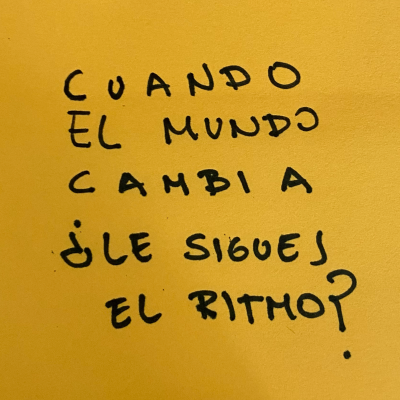 CUANDO
EL MUNDO
CAMBIA
¿LE SIGUES
EL RITMO?